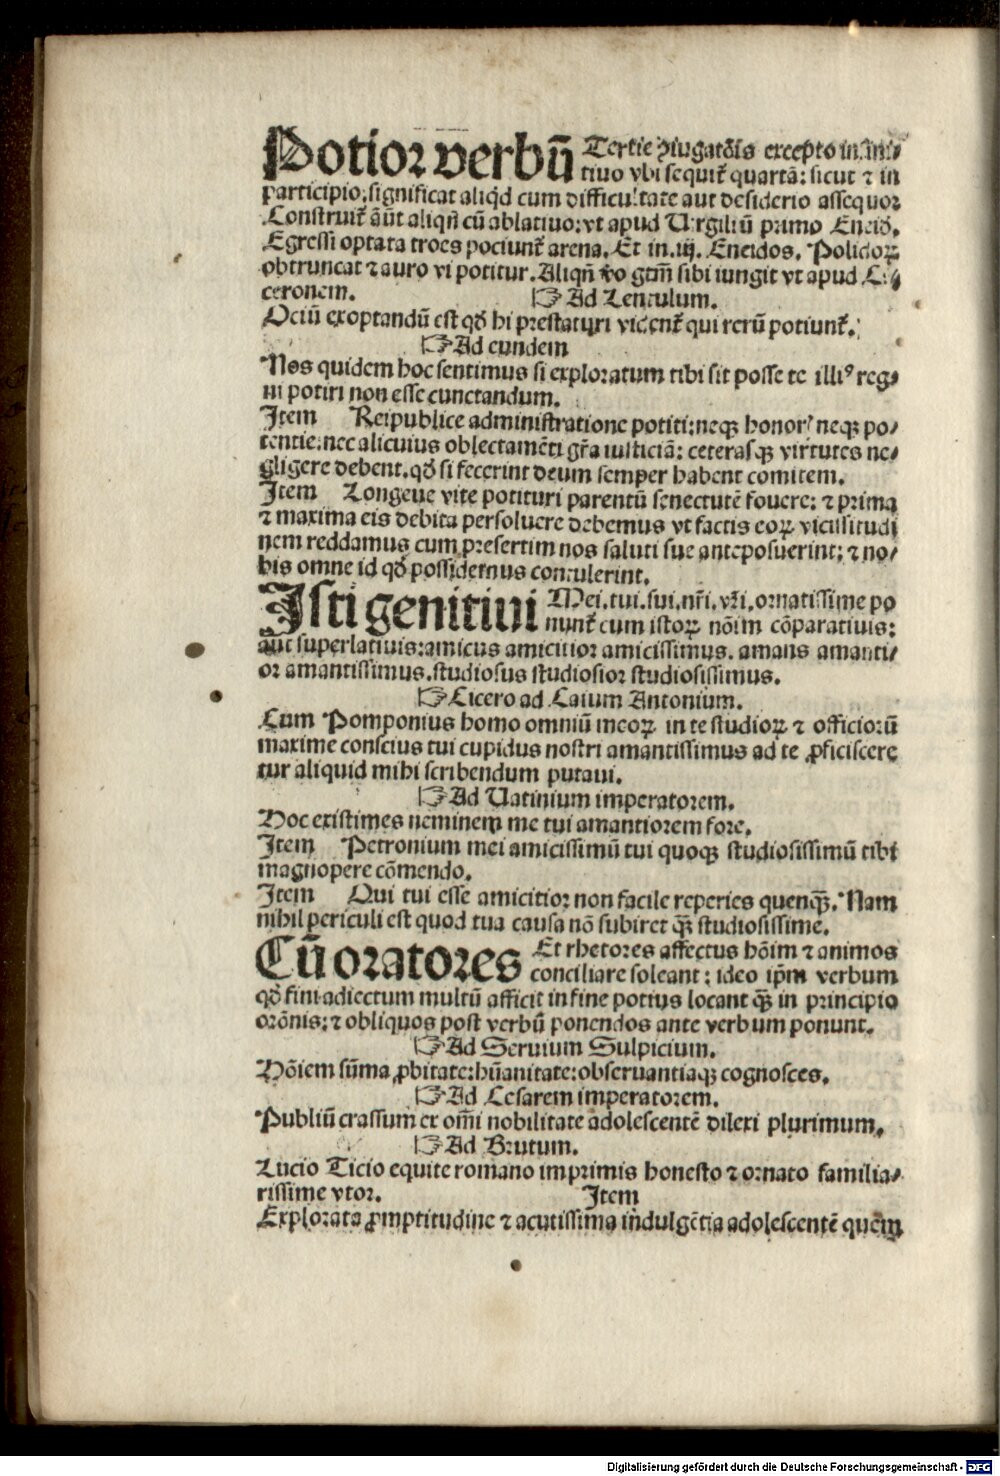 Potior verbū Tertie ꝯiugatōis excepto in infini⸗
tiuo vbi sequit̃ quartā: sicut ⁊ in
participio: significat aliqd̄ cum difficultate aut desiderio assequor
Construit̃ aūt aliqñ cū ablatiuo: vt apud Virgiliū primo Eneid̄.
Egressi optata troes pociunt̃ arena. Et in .iij. Eneidos. Polidoꝝ
obtruncat ⁊ auro vi potitur. Aliqñ v̄o gtm̄ sibi iungit vt apud Ci⸗
ceronem. ☞ Ad Lentulum.
Ociū exoptandū est qd̄ hi prestaturi vident̃ qui rerū potiunt̃.
☞ Ad eundem
Nos quidem hoc sentimus si exploratum tibi sit posse te illiꝰ reg⸗
ni potiri non esse cunctandum.
Item Reipublice administratione potiti: neqꝫ honorꝭ neqꝫ po⸗
tentie. nec alicuius oblectamēti gr̄a iusticiā: ceterasqꝫ virtutes ne⸗
gligere debent. qd̄ si fecerint deum semper habent comitem.
Item Longeue vite potituri parentū senectutē fouere: ⁊ prima
⁊ maxima eis debita persoluere debemus vt factis eoꝝ vicissitudi
nem reddamus cum presertim nos saluti sue anteposuerint: ⁊ no⸗
bis omne id qd̄ possidemus consulerint.
Isti genitiui Mei. tui. sui. nr̄i. vr̄i. ornatissime po
nunt̃ cum istoꝝ nōim cōparatiuis:
aut superlatiuis: amicus amicitior amicissimus. amans amanti⸗
or amantissimus. studiosus studiosior studiosissimus.
☞ Cicero ad Caium Antonium.
Cum Pomponius homo omniū meoꝝ in te studioꝝ ⁊ officiorū
maxime conscius tui cupidus nostri amantissimus ad te ꝓficiscere
tur aliquid mihi scribendum putaui.
☞ Ad Vatinium imperatorem.
Hoc existimes neminem me tui amantiorem fore.
Item Petronium mei amicissimū tui quoqꝫ studiosissimū tibi
magnopere cōmendo.
Item Qui tui esse amicitior non facile reperies quenqꝫ̄. Nam
nihil periculi est quod tua causa nō subiret qꝫ̄ studiosissime.
Cū oratores Et rhetores affectus hōim ⁊ animos
conciliare soleant: ideo ip̄m verbum
qd̄ fini adiectum multū afficit in fine potius locant qꝫ̄ in principio
orōnis: ⁊ obliquos post verbū ponendos ante verbum ponunt.
☞ Ad Seruium Sulpicium.
Hōiem sūma ꝓbitate: hūanitate: obseruantiaqꝫ cognosces.
☞ Ad Cesarem imperatorem.
Publiū crassum ex om̄i nobilitate adolescentē dilexi plurimum.
☞ Ad Brutum.
Lucio Ticio equite romano imprimis honesto ⁊ ornato familia⸗
rissime vtor. Item
Explorata ꝓmptitudine ⁊ acutissima indulgētia adolescentē quem
Digitalisierung gefördert durch die Deutsche Forschungsgemeinschaft - DFG